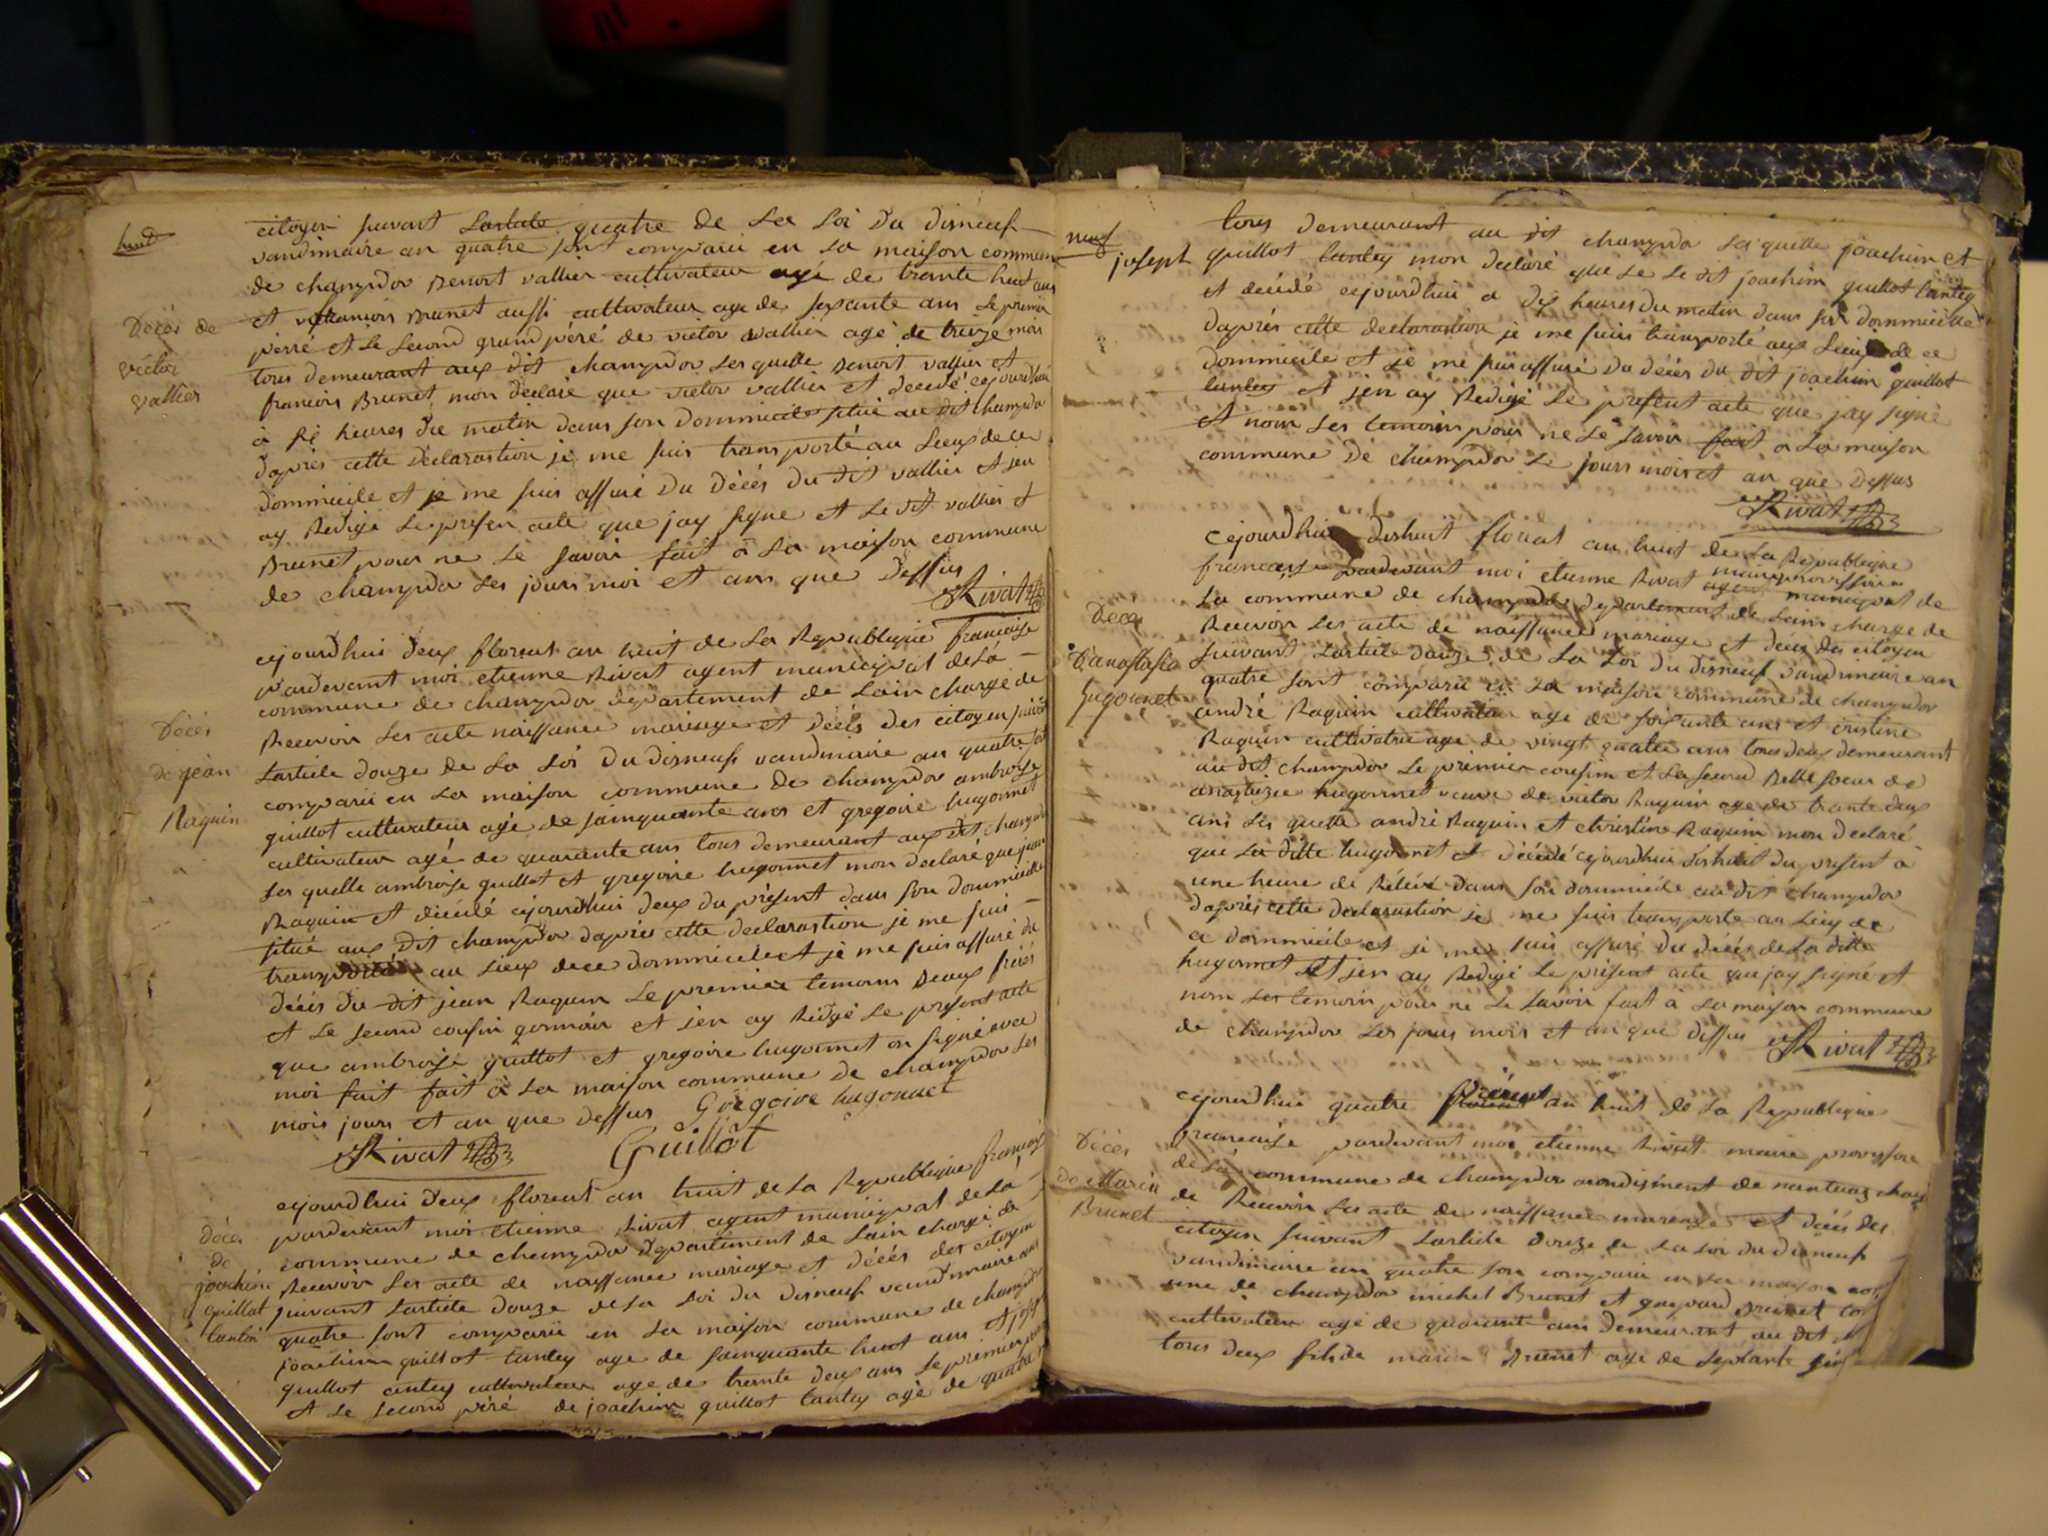 huit
citoyen suivant Larticle quatre de La Loi Du disneuf
vandimaire an quatre sont comparu en La maison commun
de champdor Benoit vallier cultivateur agé de trante huit ans
et françois Brunet aussi cultivateur age de soxante ans Le premier
perré et Le second grand péré de victor vallier agé de treize mois
tous demeurant aux dit champdor Les quelle Benoit vallier et
françois Brunet mon declaré que victor vallier et decedé cejourdhui
à six heures du matin dans son dommicile situé au dit champdor
daprès cette declarastion je me suis transporté au Lieux de ce
dommicile et je me suis assuré du décés du dit vallier et jen
ay Redigé Le presen acte que jay signe et Le dit vallier et
Brunet pour ne Le savoir fait à La maison commune
de champdor Les jours moi et ans que Dessus
Rivat
Décés de
victor
vallier
cejourdhui deux floreal an huit de La Republique francoise
pardevant moi etienne Rivat agent municipal de La
commune de champdor departement de Lain chargé de
Recevoir Les acte naissance mariage et décés des citoyen suivant
Lartiele douze de La Loi du disneuf vandimaire an quatre sont
comparu en La maison commune de champdor ambroise
guillot cultivateur agé de sainquante ans et gregoire hugonnet
cultivateur agé de quarente ans tous demeurant aux dit champdor
Les quelle ambroise guillot et gregoire hugonnet mon declaré que jean
Raquin et décédé cejourdhui deux du présent dans son dommicile
situé aux dit champdor daprès cette declarastion je me suis
transporté au Lieux de ce dommicile et je me suis assuré du
décés du dit jean Raquin Le premier temoins Beaux frére
et Le second cousin germain et jen ay Redigé Le present acte
que ambroise guillot et gregoire hugonnet on signé avec
moi fait fait à La maison commune de champdor Les
mois jours et an que dessus Grégoire hugonnet
Rivat Guillot
Décés
de jean
Raquin
cejourdhui deux floreal an huit de La Republique francois
pardevant moi etienne Rivat agent municipal de La
commune de champdor departement de Lain chargé de
Recevoir Les acte de naissance mariage et décés des citoyen
suivant Lartiele douze de La Loi du disneuf vandimaire an
quatre sont comparu en La maison commune de champdor
joachim guillot tantey age de sainquante huit ans et joseph
guillot tantey cultivateur age de trante deux ans Le premier
et Le second péré de joachim guillot tantey agé de quatre
décés
de
joachim
guillot
tantey
neuf
joseph
tous demeurant au dit champdor Les quelle joachim et
guillot tantey mon declaré que Le dit joachim guillot tantey
et décédé cejourdhui a dix heures du matin dans son dommicille
daprés cette declarastion je me suis transporté aux Lieux de ce
dommicile et je me suis assuré du décés du dit joachim guillot
tantey et jen ay Redigé Le present acte que jay signé
et nom Les temoins pour ne Le savoir fait a La maison
commune de champdor Le jours mois et an que Dessus
Rivat
cejourdhui dishuit floreal an huit de La Republique
francaise pardevant moi etienne Rivat maire provissoire
La commune de champdor departement de Lain charge de
Recevoir Les acte de naissance mariage et décés des citoyen
suivant Lartiele douze de La Loi du disneuf vandimaire an
quatre sont comparu en La maison commune de champdor
andré Raquin cultivateur age de soisante ans et cristine
Raquin cultivatrice age de vingt quatre ans tous deux demeurant
au dit champdor Le premier cousin et La second Belle soeur de
anastazie hugonnet veuve de victor Raquin age de trante deux
ans Les quelle andré Raquin et christine Raquin mon declaré
que La ditte hugonnet et décédé cejourdhui dishuit du present à
une heure de Relévé dans son dommicile au dit champdor
daprés cette declarastion je me suis transporte au Lieu de
ce dommicile et je me suis assuré du décés de La ditte
hugonnet et jen ay Redigé Le présent acte que jay signé et
nom Les temoin pour ne Le savoir fait à La maison commune
de champdor Les jours mois et an que dessus Rivat
Décés
danastasia
hugonnet
cejourdhui quatre prérial an huit de La Republique
francaise pardevant moi etienne Rivat maire provissore
de La commune de champdor arondisment de nantuaz chargé
de Recevoir Les acte de naissance marenge et décés des
citoyen suivant Lartiele douze de La Loi du disneuf
vandimaire an quatre son comparu en La maison com
une de champdor michel Brunet et gaspard Brunet tous
cultivateur agé de quarante ans demeurant au dit
tous deux fils de marin Brunet agé de septante
Décés
de Marin
Brunet